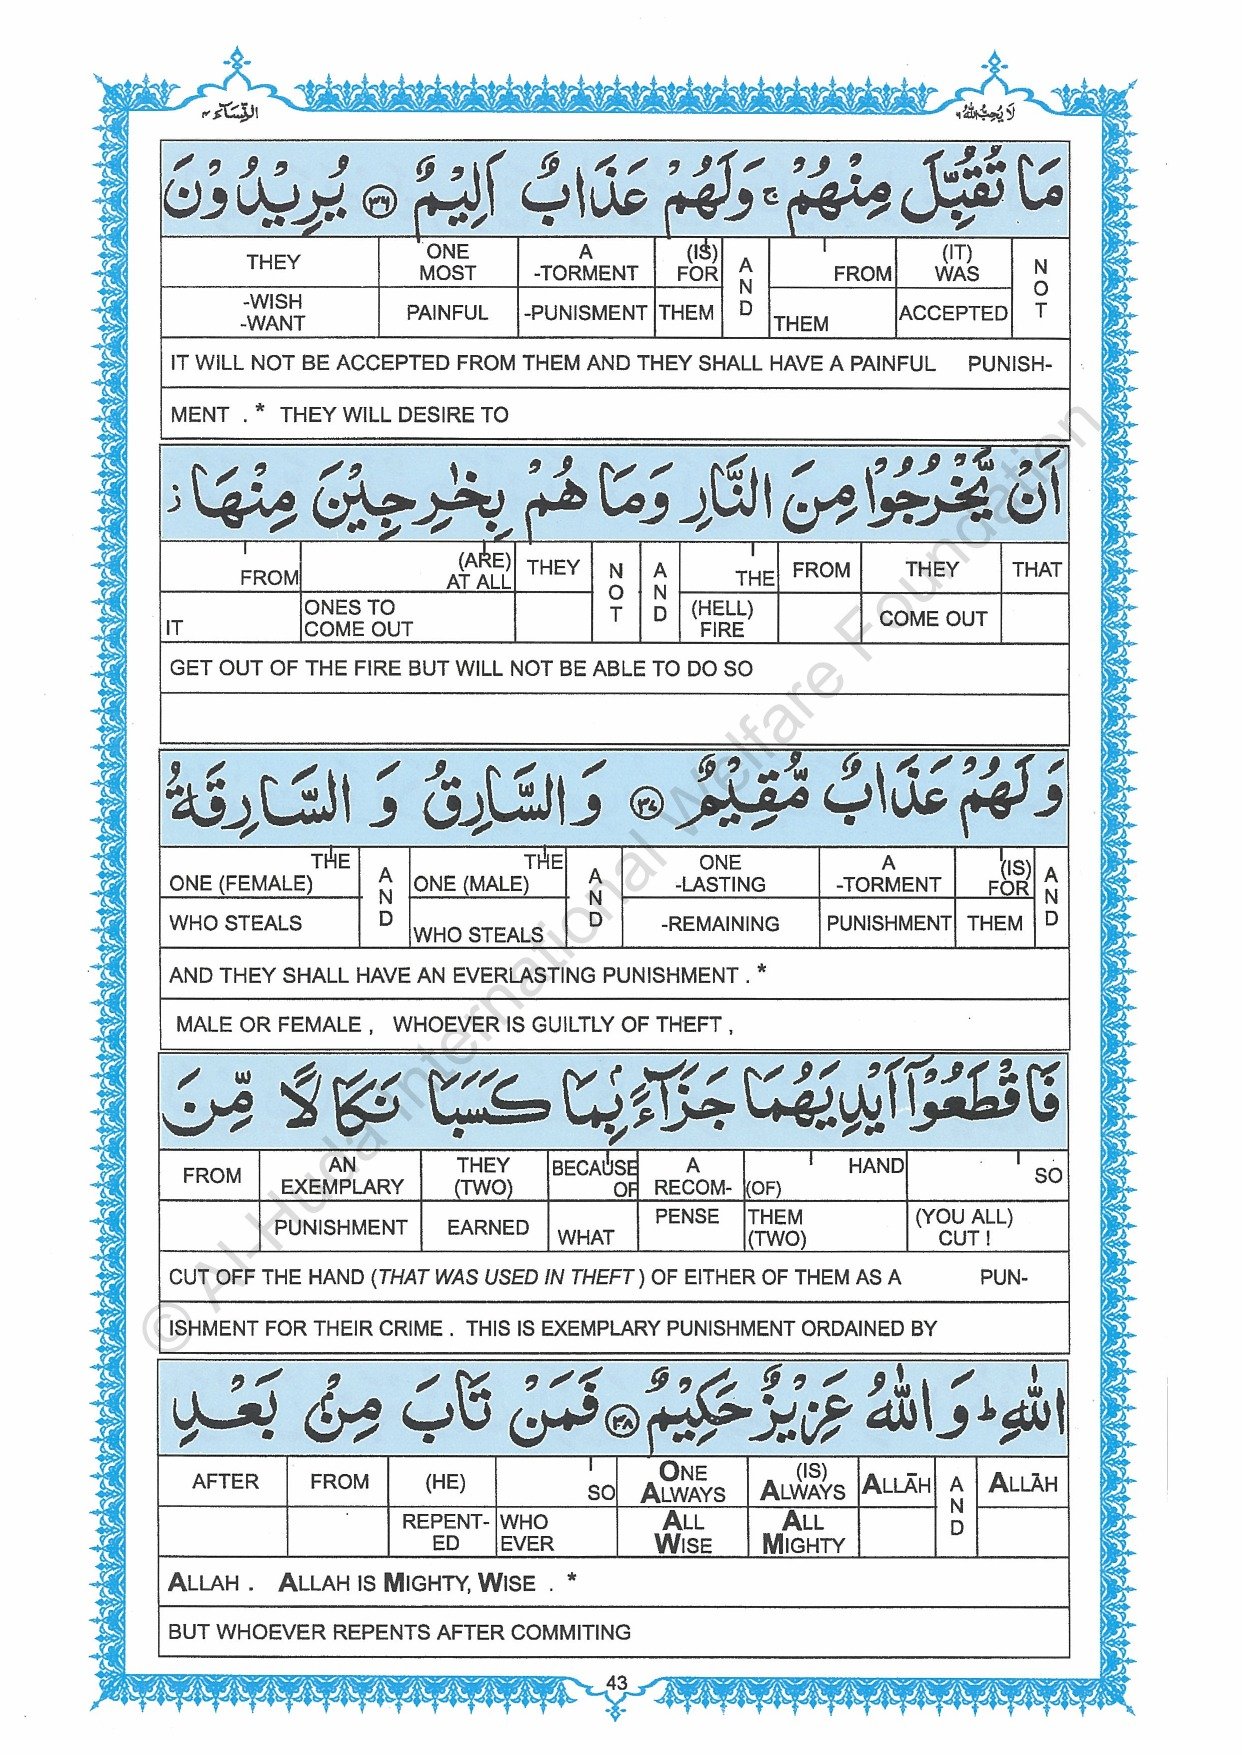 النِّسَآء ٤
لَا يُحِبُّ اللهُ ٦
مَا تُقُبِّلَ مِنْهُمْ ۚ وَلَهُمْ عَذَابٌ اَلِيْمٌ ﴿۳۶﴾ يُرِيْدُوْنَ
THEY ONE MOST A -TORMENT (IS) FOR AND FROM (IT) WAS NOT
-WISH -WANT PAINFUL -PUNISMENT THEM THEM ACCEPTED
IT WILL NOT BE ACCEPTED FROM THEM AND THEY SHALL HAVE A PAINFUL PUNISH-
MENT . * THEY WILL DESIRE TO
اَنْ يَّخْرُجُوْا مِنَ النَّارِ وَمَا هُمْ بِخٰرِجِيْنَ مِنْهَا ز
FROM (ARE) AT ALL THEY NOT AND THE FROM THEY THAT
IT ONES TO COME OUT (HELL) FIRE COME OUT
GET OUT OF THE FIRE BUT WILL NOT BE ABLE TO DO SO
وَلَهُمْ عَذَابٌ مُّقِيْمٌ ﴿۳۷﴾ وَالسَّارِقُ وَ السَّارِقَةُ
THE ONE (FEMALE) AND THE ONE (MALE) AND ONE -LASTING A -TORMENT (IS) FOR AND
WHO STEALS WHO STEALS -REMAINING PUNISHMENT THEM
AND THEY SHALL HAVE AN EVERLASTING PUNISHMENT . *
MALE OR FEMALE , WHOEVER IS GUILTLY OF THEFT ,
فَاقْطَعُوْٓا اَيْدِيَهُمَا جَزَآءًۢ بِمَا كَسَبَا نَكَالًا مِّنَ
FROM AN EXEMPLARY THEY (TWO) BECAUSE OF A RECOM- HAND (OF) SO
PUNISHMENT EARNED WHAT PENSE THEM (TWO) (YOU ALL) CUT !
CUT OFF THE HAND (THAT WAS USED IN THEFT ) OF EITHER OF THEM AS A PUN-
ISHMENT FOR THEIR CRIME . THIS IS EXEMPLARY PUNISHMENT ORDAINED BY
اللهِ ؕ وَاللهُ عَزِيْزٌ حَكِيْمٌ ﴿۳۸﴾ فَمَنْ تَابَ مِنْۢ بَعْدِ
AFTER FROM (HE) SO ONE ALWAYS (IS) ALWAYS ALLĀH AND ALLĀH
REPENT- ED WHO EVER ALL WISE ALL MIGHTY
ALLAH . ALLAH IS MIGHTY, WISE . *
BUT WHOEVER REPENTS AFTER COMMITING
43
© Al-Huda International Welfare Foundation